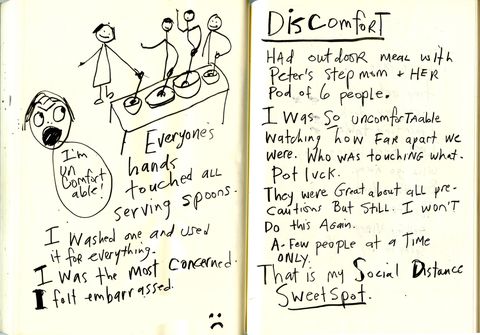 I'm
un
comfort
able!
Everyone's
hands
touched all
serving spoons.
I washed one and used
it for everything.
I was the most concerned.
I felt embarrassed.
Discomfort
Had outdoor meal with
Peter's step mom + her
Pod of 6 people.
I was so uncomfortaable
watching how far apart we
were. Who was touching what.
Pot luck.
They were great about all pre-
cautions But still. I won't
Do this Again.
A-Few people at a Time
ONLY.
That is my Social Distance
Sweet Spot.